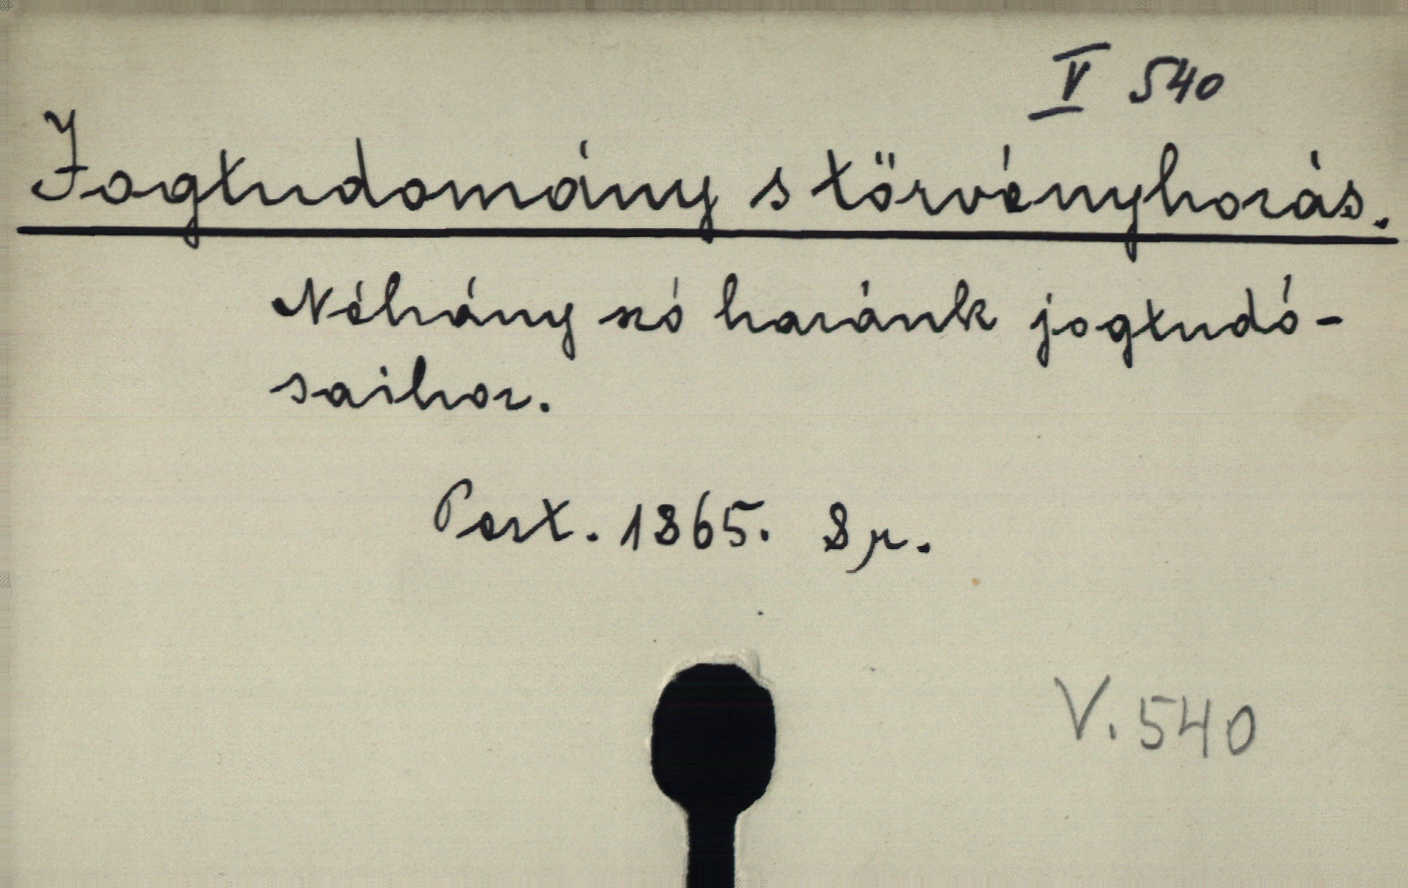 V 540
Jogtudomány s törvényhozás.
Néhány szó hazánk jogtudó-
saihoz.
Pest. 1865. 8 r.
V. 540